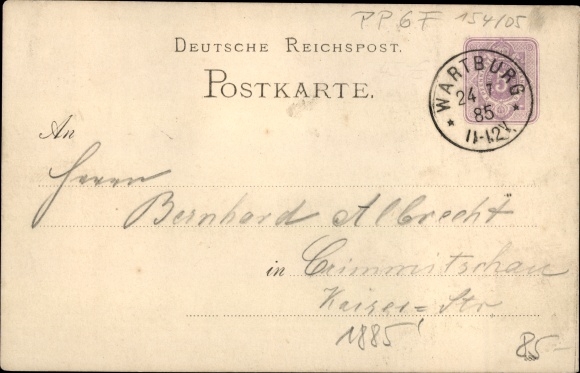 PP 6 F 154/05
DEUTSCHE REICHSPOST.
POSTKARTE.
WARTBURG
24 7
85
11-12V.
An
Herrn
Bernhard Albrecht
in Crimmitschau
Kaiser-Str.
1885
85-